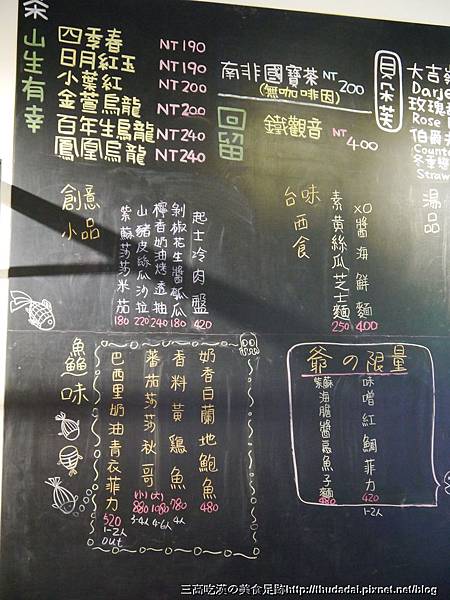 茶
山生有幸
四季春 NT190
日月紅玉 NT190
小葉紅 NT200
金萱烏龍 NT200
百年生烏龍 NT240
鳳凰烏龍 NT240
南非國寶茶 NT200
(無咖啡因)
回留
鐵觀音 NT400
貝朵芙
大吉嶺
Darje
玫瑰
Rose
伯爵
Count
冬季戀
Straw
創意小品
起士冷肉盤 420
剝椒花生醬瓜 180
檸香奶油烤透抽 240
山豬皮絲瓜沙拉 220
紫蘇莎莎米茄 180
台味西食
XO醬海鮮麵 400
素黃絲瓜芝士麵 250
湯品
魚鱻味
奶香白蘭地鮑魚 480
香料黃鷄魚 780 4人
蕃茄莎莎秋哥 (小)880 (大)1080 3-4人 4-6人
巴西里奶油青衣菲力 520 1-2人 out
爺の限量
味噌紅鯛菲力 420 1-2人
紫蘇海膽醬烏魚子麵 480
三高吃漢の美食足跡http://thudadai.pixnet.net/blog